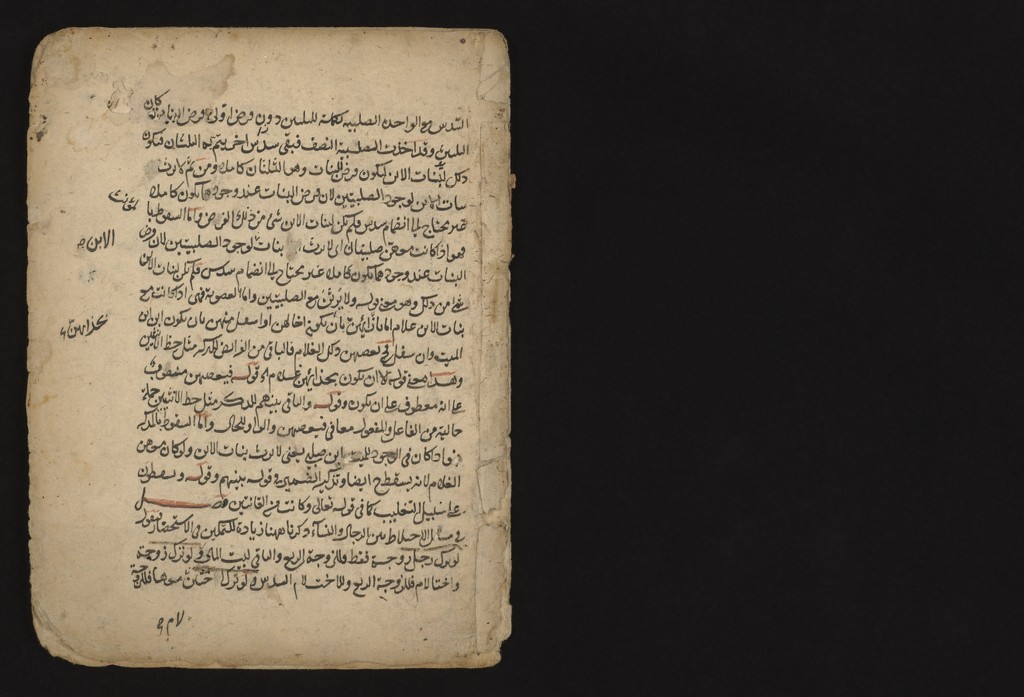 السدس مع الواحدة الصلبية تكملة للثلثين دون فرض اولى فرض البنات كان
الثلثين وقد اخذت الصلبية النصف فبقى سدس اخر يتم به الثلثان فيكون
ذلك لبنات الابن ليكون فرض البنات وهما الثلثان كاملا ومن ثم لا يرث
بنات الابن لوجود الصلبيتين لان فرض البنات عند وجودهما يكون كاملا
غير محتاج الى انضمام سدس فلم يكن لبنات الابن شئ من ذلك الفرض واما السقوط
فهو اذا كانت معهن صلبيتان اى لا يرث بنات لوجود الصلبيتين لان فرض
البنات عند وجودهما يكون كاملا غير محتاج الى انضمام سدس فلم يكن لبنات الابن
شئ من ذلك وهو معنى قوله ولا يرثن مع الصلبيتين واما العصوبة فهى اذا كانت مع
بنات الابن غلام اما بان يكون اخا لهن او اسفل منهن بان يكون ابن ابن
الميت وان سفل فيعصبهن ذلك الغلام فالباقى من الفرائض للذكر مثل حظ الانثيين
وهذا معنى قوله الا ان يكون بحذائهن غلام وقوله فيعصبهن منصوب
على انه معطوف على ان يكون وقوله والباقى بينهم للذكر مثل حظ الانثيين جملة
حالية من الفاعل والمفعول معا فى فيعصبهن والواو للحال واما السقوط بالذكر
فاذا كان فى الوجود للميت ابن صلبى يعنى لا يرث بنات الابن ولو كان معهن
الغلام لانه يسقط ايضا وتذكير الضمير فى قوله بينهم وقوله ويسقطون
على سبيل التغليب كما فى قوله تعالى وكانت من القانتين فصل
فى مسائل الاختلاط من الرجال والنساء ذكرناها هنا زيادة للكملين فى الاستحضار فنقول
لو ترك رجل زوجة فقط فللزوجة الربع والباقى لبيت المال ولو ترك زوجة
واختا لام فللزوجة الربع وللاخت لام السدس ولو ترك اختين معها فللزوجة
الابن
بحذائهن
لام